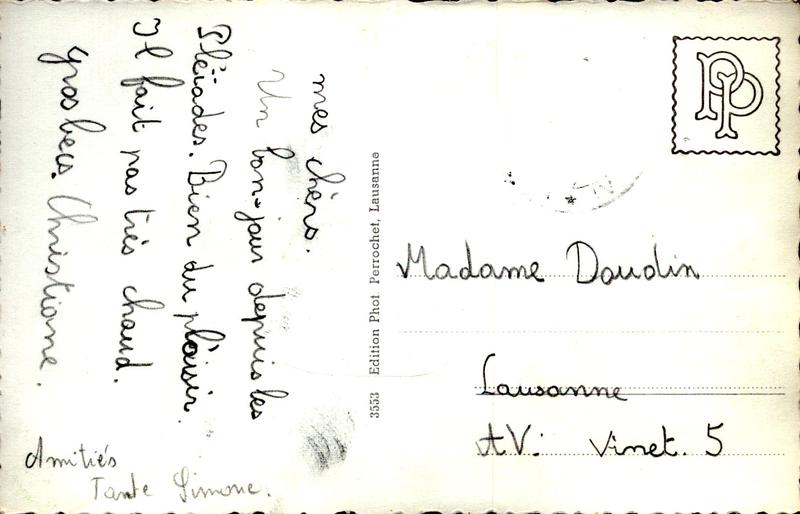 mes chérs.
Un bon-jour depuis les
Pléiades. Bien du plaisir.
Il fait pas très chaud.
gros becs. Christiane.
Amitiés
Tante Simone.
3553 Edition Phot. Perrochet, Lausanne
PP
Madame Daudin
Lausanne
AV. Vinet. 5